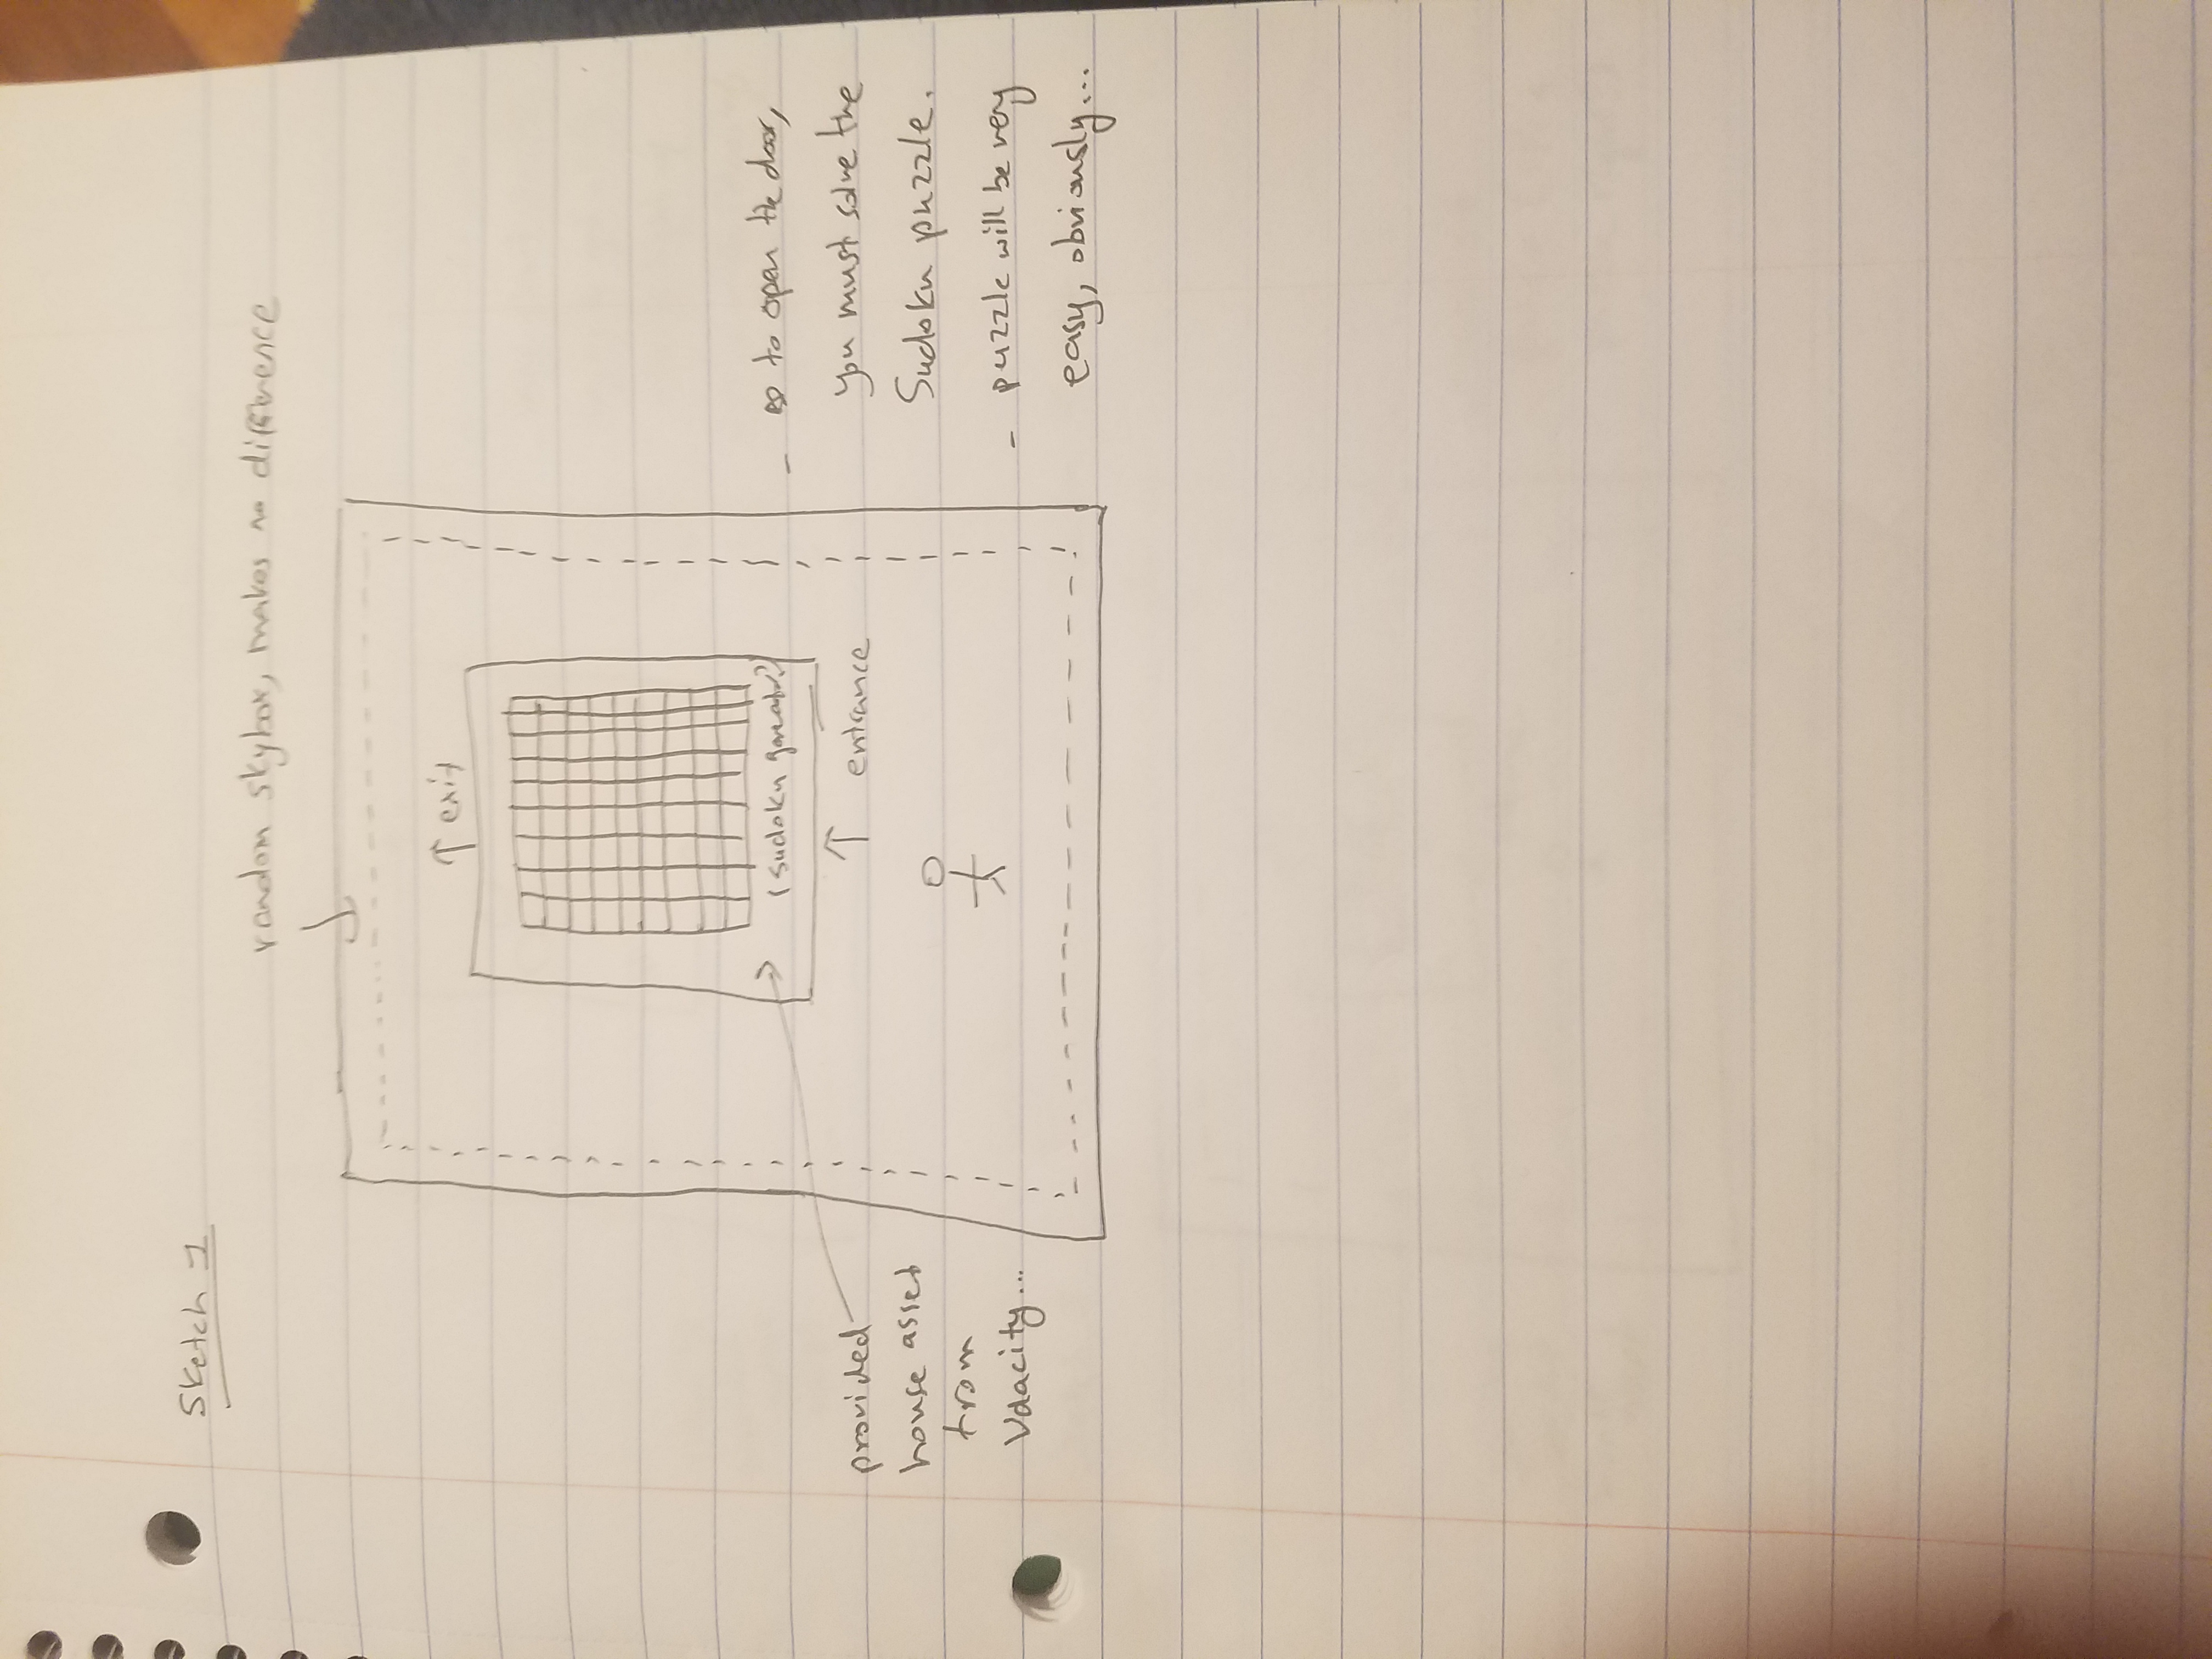 Sketch 1
random skybox, makes no difference
↑ exit
(Sudoku generator?)
↑ entrance
provided
house asset
from
Udacity...
- to open the door,
you must solve the
Sudoku puzzle.
- puzzle will be very
easy, obviously...